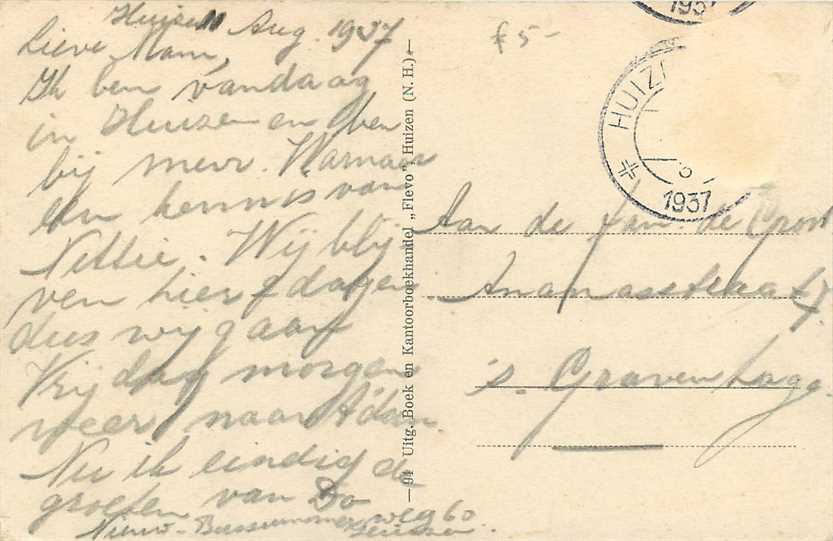 Huizen Aug. 1937
Lieve Mam,
Ik ben vandaag
in Huizen en ben
bij mevr. Warnaar
een kennis van
Nettie. Wij blij
ven hier 2 dagen
dus wij gaan
Vrijdag morgen
weer naar A'dam.
Nu ik eindig de
groeten van Do
Nieuw-Bussummerweg 60
Huizen.
f 5-
1937
HUIZ
1937
Aan de fam. de Groot
Ananasstraat
's. Gravenhage
— 94 Uitg. Boek en Kantoorboekhandel „Flevo", Huizen (N. H.) —